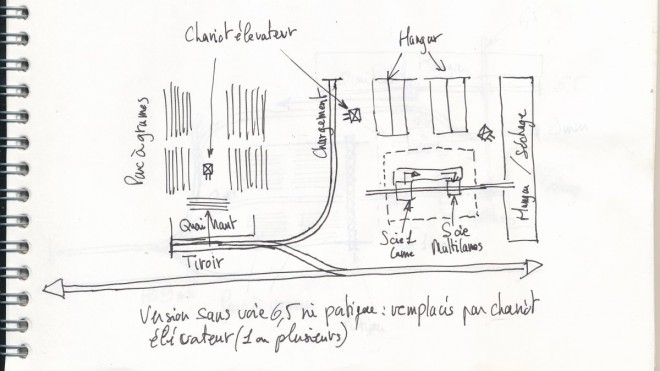 Chariot élévateur
Hangar
Parc à grumes
Chargement
Hangar / Séchage
Quai haut
Scie 1
lame
Scie
Multilames
Tiroir
Version sans voie 6,5 ni : remplacés par chariot
élévateur (1 ou plusieurs)